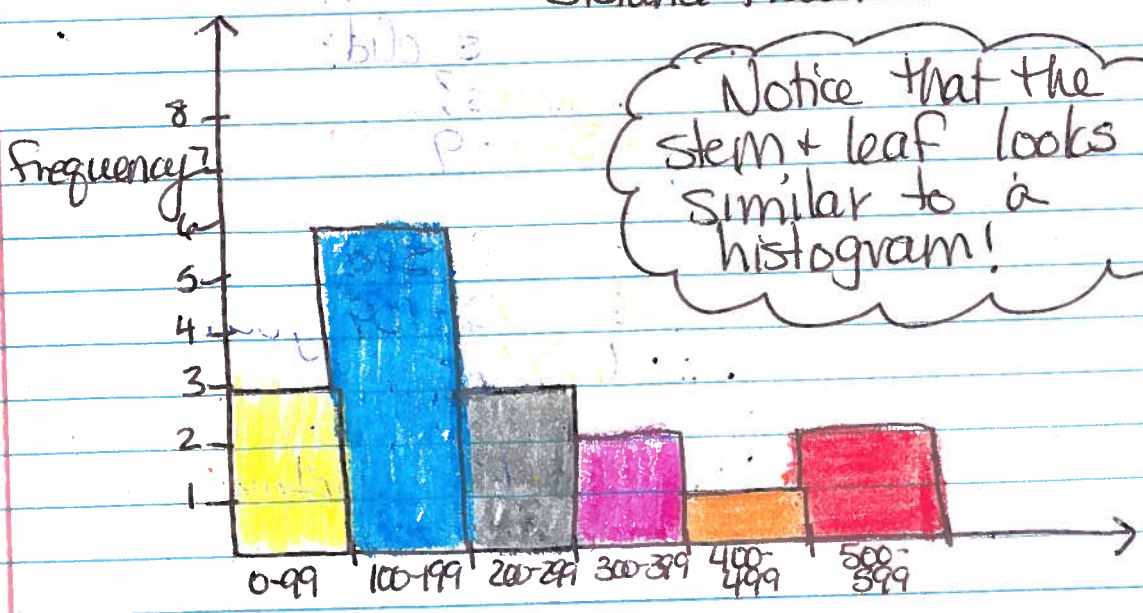 Notice that the
stem + leaf looks
similar to a
histogram!
8
frequency
7
6
5
4
3
2
1
0-99
100-199
200-299
300-399
400-
499
500-
599